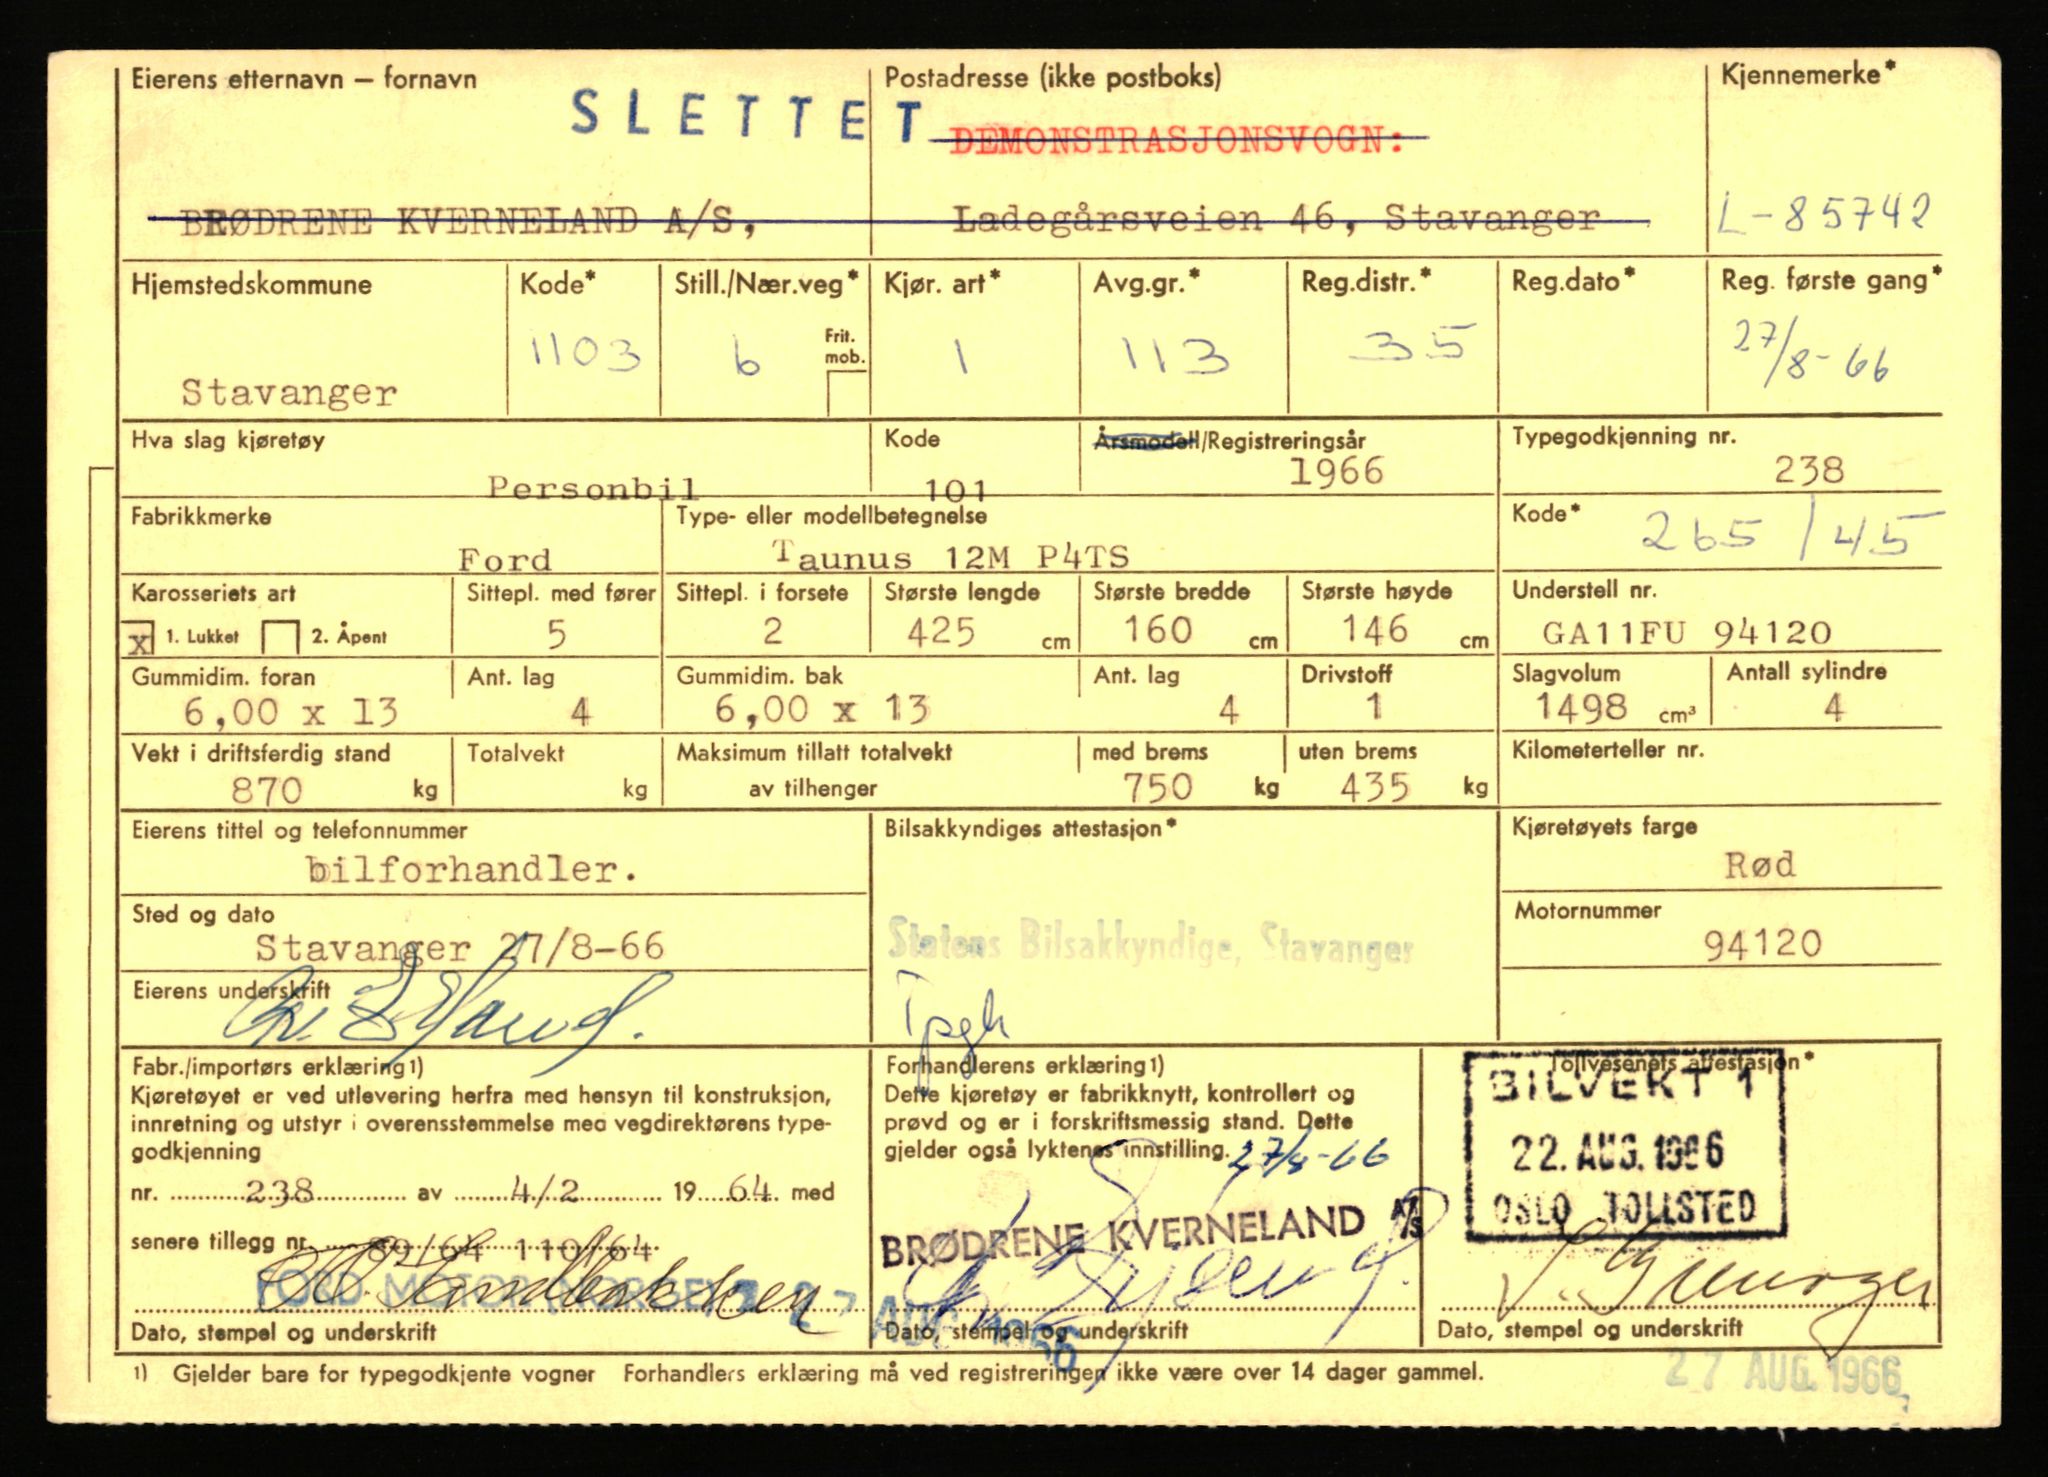 Eierens etternavn – fornavn
Postadresse (ikke postboks)
Kjennemerke*
SLETTET
DEMONSTRASJONSVOGN:
BRØDRENE KVERNELAND A/S,
Ladegårsveien 46, Stavanger
L-85742
Hjemstedskommune
Kode*
Still./Nær.veg*
Kjør. art*
Avg.gr.*
Reg.distr.*
Reg.dato*
Reg. første gang*
Stavanger
1103
6
Frit. mob.
1
113
35
27/8-66
Hva slag kjøretøy
Kode
Årsmodell/Registreringsår
Typegodkjenning nr.
Personbil
101
1966
238
Fabrikkmerke
Type- eller modellbetegnelse
Kode*
Ford
Taunus 12M P4TS
265/45
Karosseriets art
Sittepl. med fører
Sittepl. i forsete
Største lengde
Største bredde
Største høyde
Understell nr.
x 1. Lukket
2. Åpent
5
2
425 cm
160 cm
146 cm
GA11FU 94120
Gummidim. foran
Ant. lag
Gummidim. bak
Ant. lag
Drivstoff
Slagvolum
Antall sylindre
6,00 x 13
4
6,00 x 13
4
1
1498 cm³
4
Vekt i driftsferdig stand
Totalvekt
Maksimum tillatt totalvekt
med brems
uten brems
Kilometerteller nr.
870 kg
kg
av tilhenger
750 kg
435 kg
Eierens tittel og telefonnummer
Bilsakkyndiges attestasjon*
Kjøretøyets farge
bilforhandler.
Rød
Sted og dato
Motornummer
Stavanger 27/8-66
Statens Bilsakkyndige, Stavanger
94120
Eierens underskrift
Tpgk
Fabr./importørs erklæring1)
Kjøretøyet er ved utlevering herfra med hensyn til konstruksjon,
innretning og utstyr i overensstemmelse med vegdirektørens type-
godkjenning
nr. 238 av 4/2 1964. med
senere tillegg nr. 89/64 110/64.
FORD MOTOR NORGE
27 AUG 1966
Dato, stempel og underskrift
Forhandlerens erklæring1)
Dette kjøretøy er fabrikknytt, kontrollert og
prøvd og er i forskriftsmessig stand. Dette
gjelder også lyktenes innstilling. 27/8-66
BRØDRENE KVERNELAND A/S
Dato, stempel og underskrift
Tollvesenets attestasjon*
BILVEKT 1
22. AUG. 1966
OSLO TOLLSTED
Dato, stempel og underskrift
1) Gjelder bare for typegodkjente vogner Forhandlers erklæring må ved registreringen ikke være over 14 dager gammel.
27 AUG. 1966